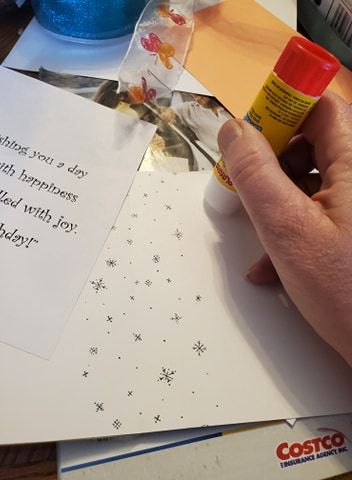 shing you a day
ith happiness
lled with joy.
hday!"
COSTCO
INSURANCE AGENCY, INC.